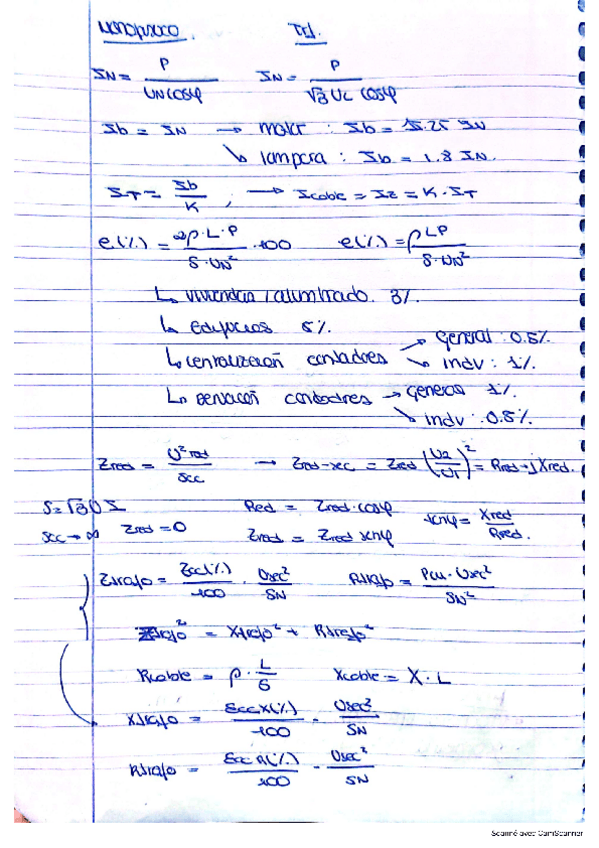 Monofásico. Tri.
IN = P / UN cosφ IN = P / √3 UL cosφ
Ib = IN → motor : Ib = 1.25 IN
↳ lampara : Ib = 1.8 IN.
IT = Ib / K , → Icable = IZ = K · IT
e(%) = 2ρ·L·P / S·UN² · 100 e(%) = ρLP / S·UN²
↳ viviendas / alumbrado. 3%.
↳ edificios 5%.
↳ centralización contadores → general : 0.5%.
↘ indv : 1%.
↳ contadores → general 1%.
↘ indv : 0.5%.
Zred = U²red / Scc → Zred-sec = Zred (U2/U1)² = Rred + jXred.
S = √3 U I Rred = Zred · cosφ
Scc → ∞ Zred = 0 Zred = Zred senφ tenφ = Xred / Rred.
Ztrafo = Zcc(%) / 100 · Usec² / SN Rtrafo = Pcu · Usec² / SN²
Ztrafo² = Xtrafo² + Rtrafo²
Rcable = ρ · L / S Xcable = X · L
Xtrafo = EccX(%) / 100 · Usec² / SN
Rtrafo = EccR(%) / 100 · Usec² / SN
Scanné avec CamScanner